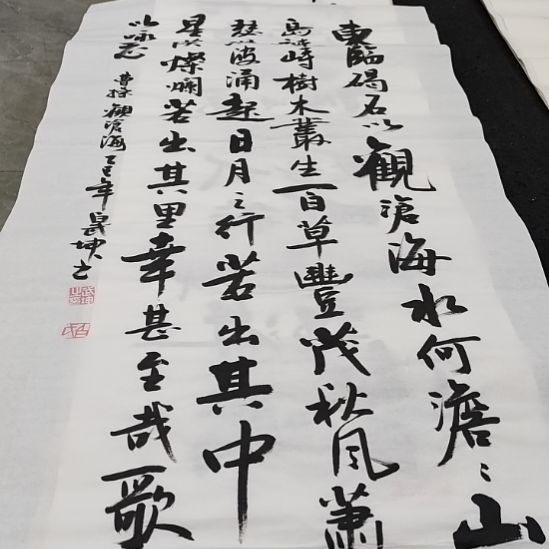 東臨碣石以觀滄海水何澹〻山
島竦峙樹木叢生百草豐茂秋风蕭
瑟洪波涌起日月之行若出其中
星漢燦爛若出其里幸甚至哉歌
以咏志 曹操觀滄海 乙巳年坤书